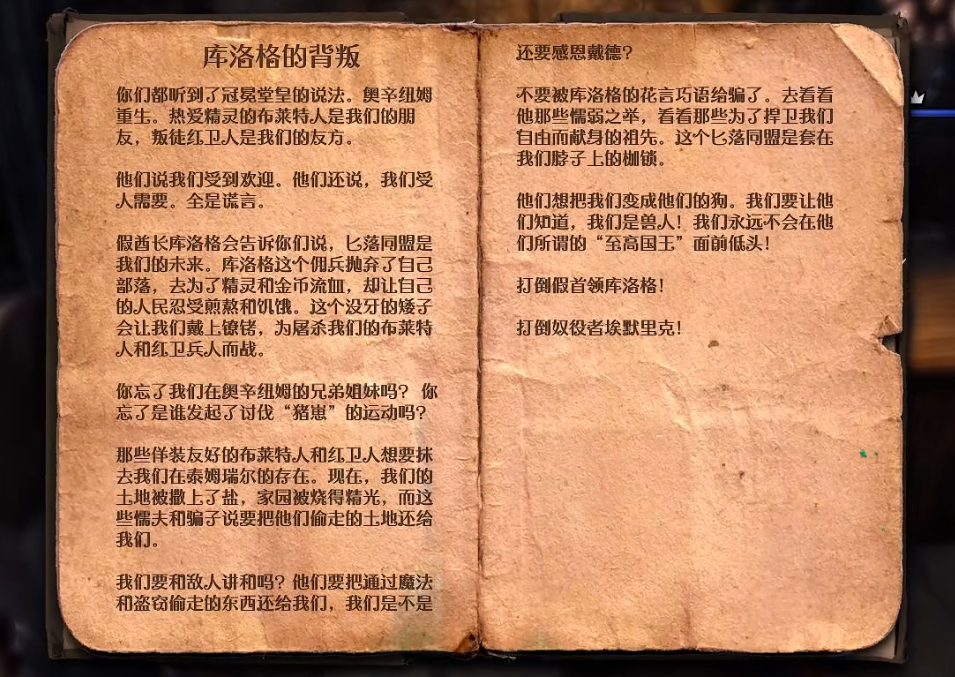 库洛格的背叛
你们都听到了冠冕堂皇的说法。奥辛纽姆
重生。热爱精灵的布莱特人是我们的朋
友，叛徒红卫人是我们的友方。
他们说我们受到欢迎。他们还说，我们受
人需要。全是谎言。
假酋长库洛格会告诉你们说，匕落同盟是
我们的未来。库洛格这个佣兵抛弃了自己
部落，去为了精灵和金币流血，却让自己
的人民忍受煎熬和饥饿。这个没牙的矮子
会让我们戴上镣铐，为屠杀我们的布莱特
人和红卫兵人而战。
你忘了我们在奥辛纽姆的兄弟姐妹吗？你
忘了是谁发起了讨伐“猪崽”的运动吗？
那些佯装友好的布莱特人和红卫人想要抹
去我们在泰姆瑞尔的存在。现在，我们的
土地被撒上了盐，家园被烧得精光，而这
些懦夫和骗子说要把他们偷走的土地还给
我们。
我们要和敌人讲和吗？他们要把通过魔法
和盗窃偷走的东西还给我们，我们是不是
还要感恩戴德？
不要被库洛格的花言巧语给骗了。去看看
他那些懦弱之举，看看那些为了捍卫我们
自由而献身的祖先。这个匕落同盟是套在
我们脖子上的枷锁。
他们想把我们变成他们的狗。我们要让他
们知道，我们是兽人！我们永远不会在他
们所谓的“至高国王”面前低头！
打倒假首领库洛格！
打倒奴役者埃默里克！